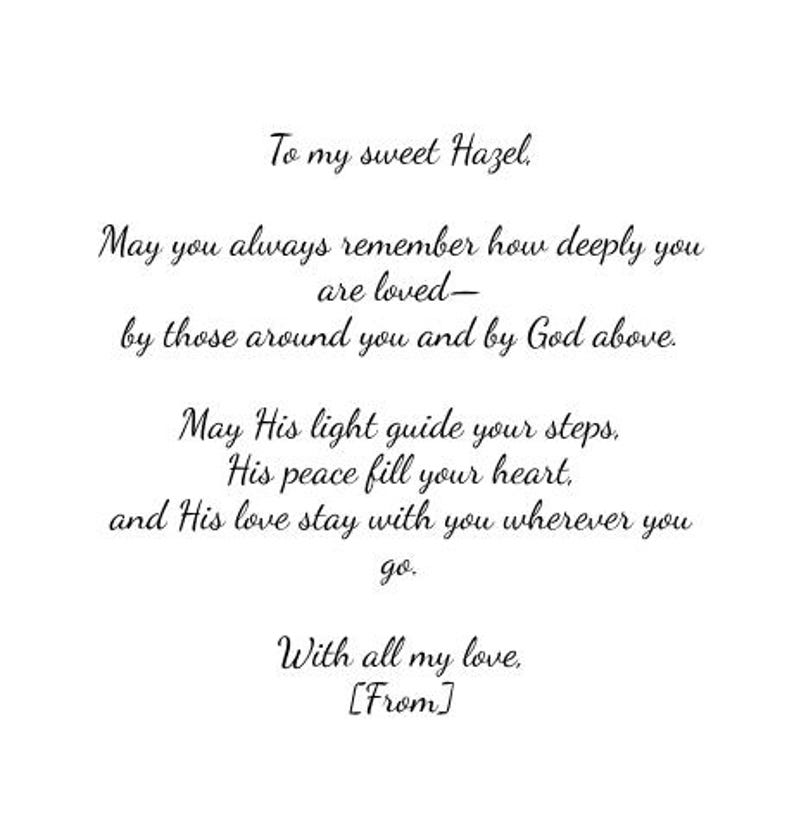 To my sweet Hazel,
May you always remember how deeply you
are loved—
by those around you and by God above.
May His light guide your steps,
His peace fill your heart,
and His love stay with you wherever you
go.
With all my love,
[From]